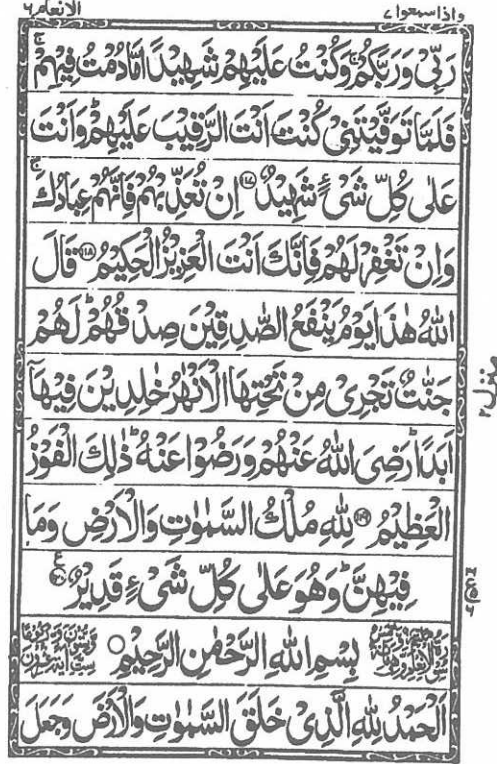 واذا سمعوا ٧ الانعام ٦
رَبِّیْ وَرَبَّكُمْ ۚ وَكُنْتُ عَلَیْهِمْ شَهِیْدًا مَّادُمْتُ فِیْهِمْ ۚ
فَلَمَّا تَوَفَّیْتَنِیْ كُنْتَ اَنْتَ الرَّقِیْبَ عَلَیْهِمْ ؕ وَاَنْتَ
عَلٰی كُلِّ شَیْءٍ شَهِیْدٌ ﴿۱۱۷﴾ اِنْ تُعَذِّبْهُمْ فَاِنَّهُمْ عِبَادُكَ ۚ
وَاِنْ تَغْفِرْ لَهُمْ فَاِنَّكَ اَنْتَ الْعَزِیْزُ الْحَكِیْمُ ﴿۱۱۸﴾ قَالَ
اللّٰهُ هٰذَا یَوْمُ یَنْفَعُ الصّٰدِقِیْنَ صِدْقُهُمْ ؕ لَهُمْ
جَنّٰتٌ تَجْرِیْ مِنْ تَحْتِهَا الْاَنْهٰرُ خٰلِدِیْنَ فِیْهَاۤ
اَبَدًا ؕ رَضِیَ اللّٰهُ عَنْهُمْ وَرَضُوْا عَنْهُ ؕ ذٰلِكَ الْفَوْزُ
الْعَظِیْمُ ﴿۱۱۹﴾ لِلّٰهِ مُلْكُ السَّمٰوٰتِ وَالْاَرْضِ وَمَا
فِیْهِنَّ ؕ وَهُوَ عَلٰی كُلِّ شَیْءٍ قَدِیْرٌ ﴿۱۲۰﴾ ع
بِسْمِ اللّٰهِ الرَّحْمٰنِ الرَّحِیْمِ ○
اَلْحَمْدُ لِلّٰهِ الَّذِیْ خَلَقَ السَّمٰوٰتِ وَالْاَرْضَ وَجَعَلَ
منزل ۲